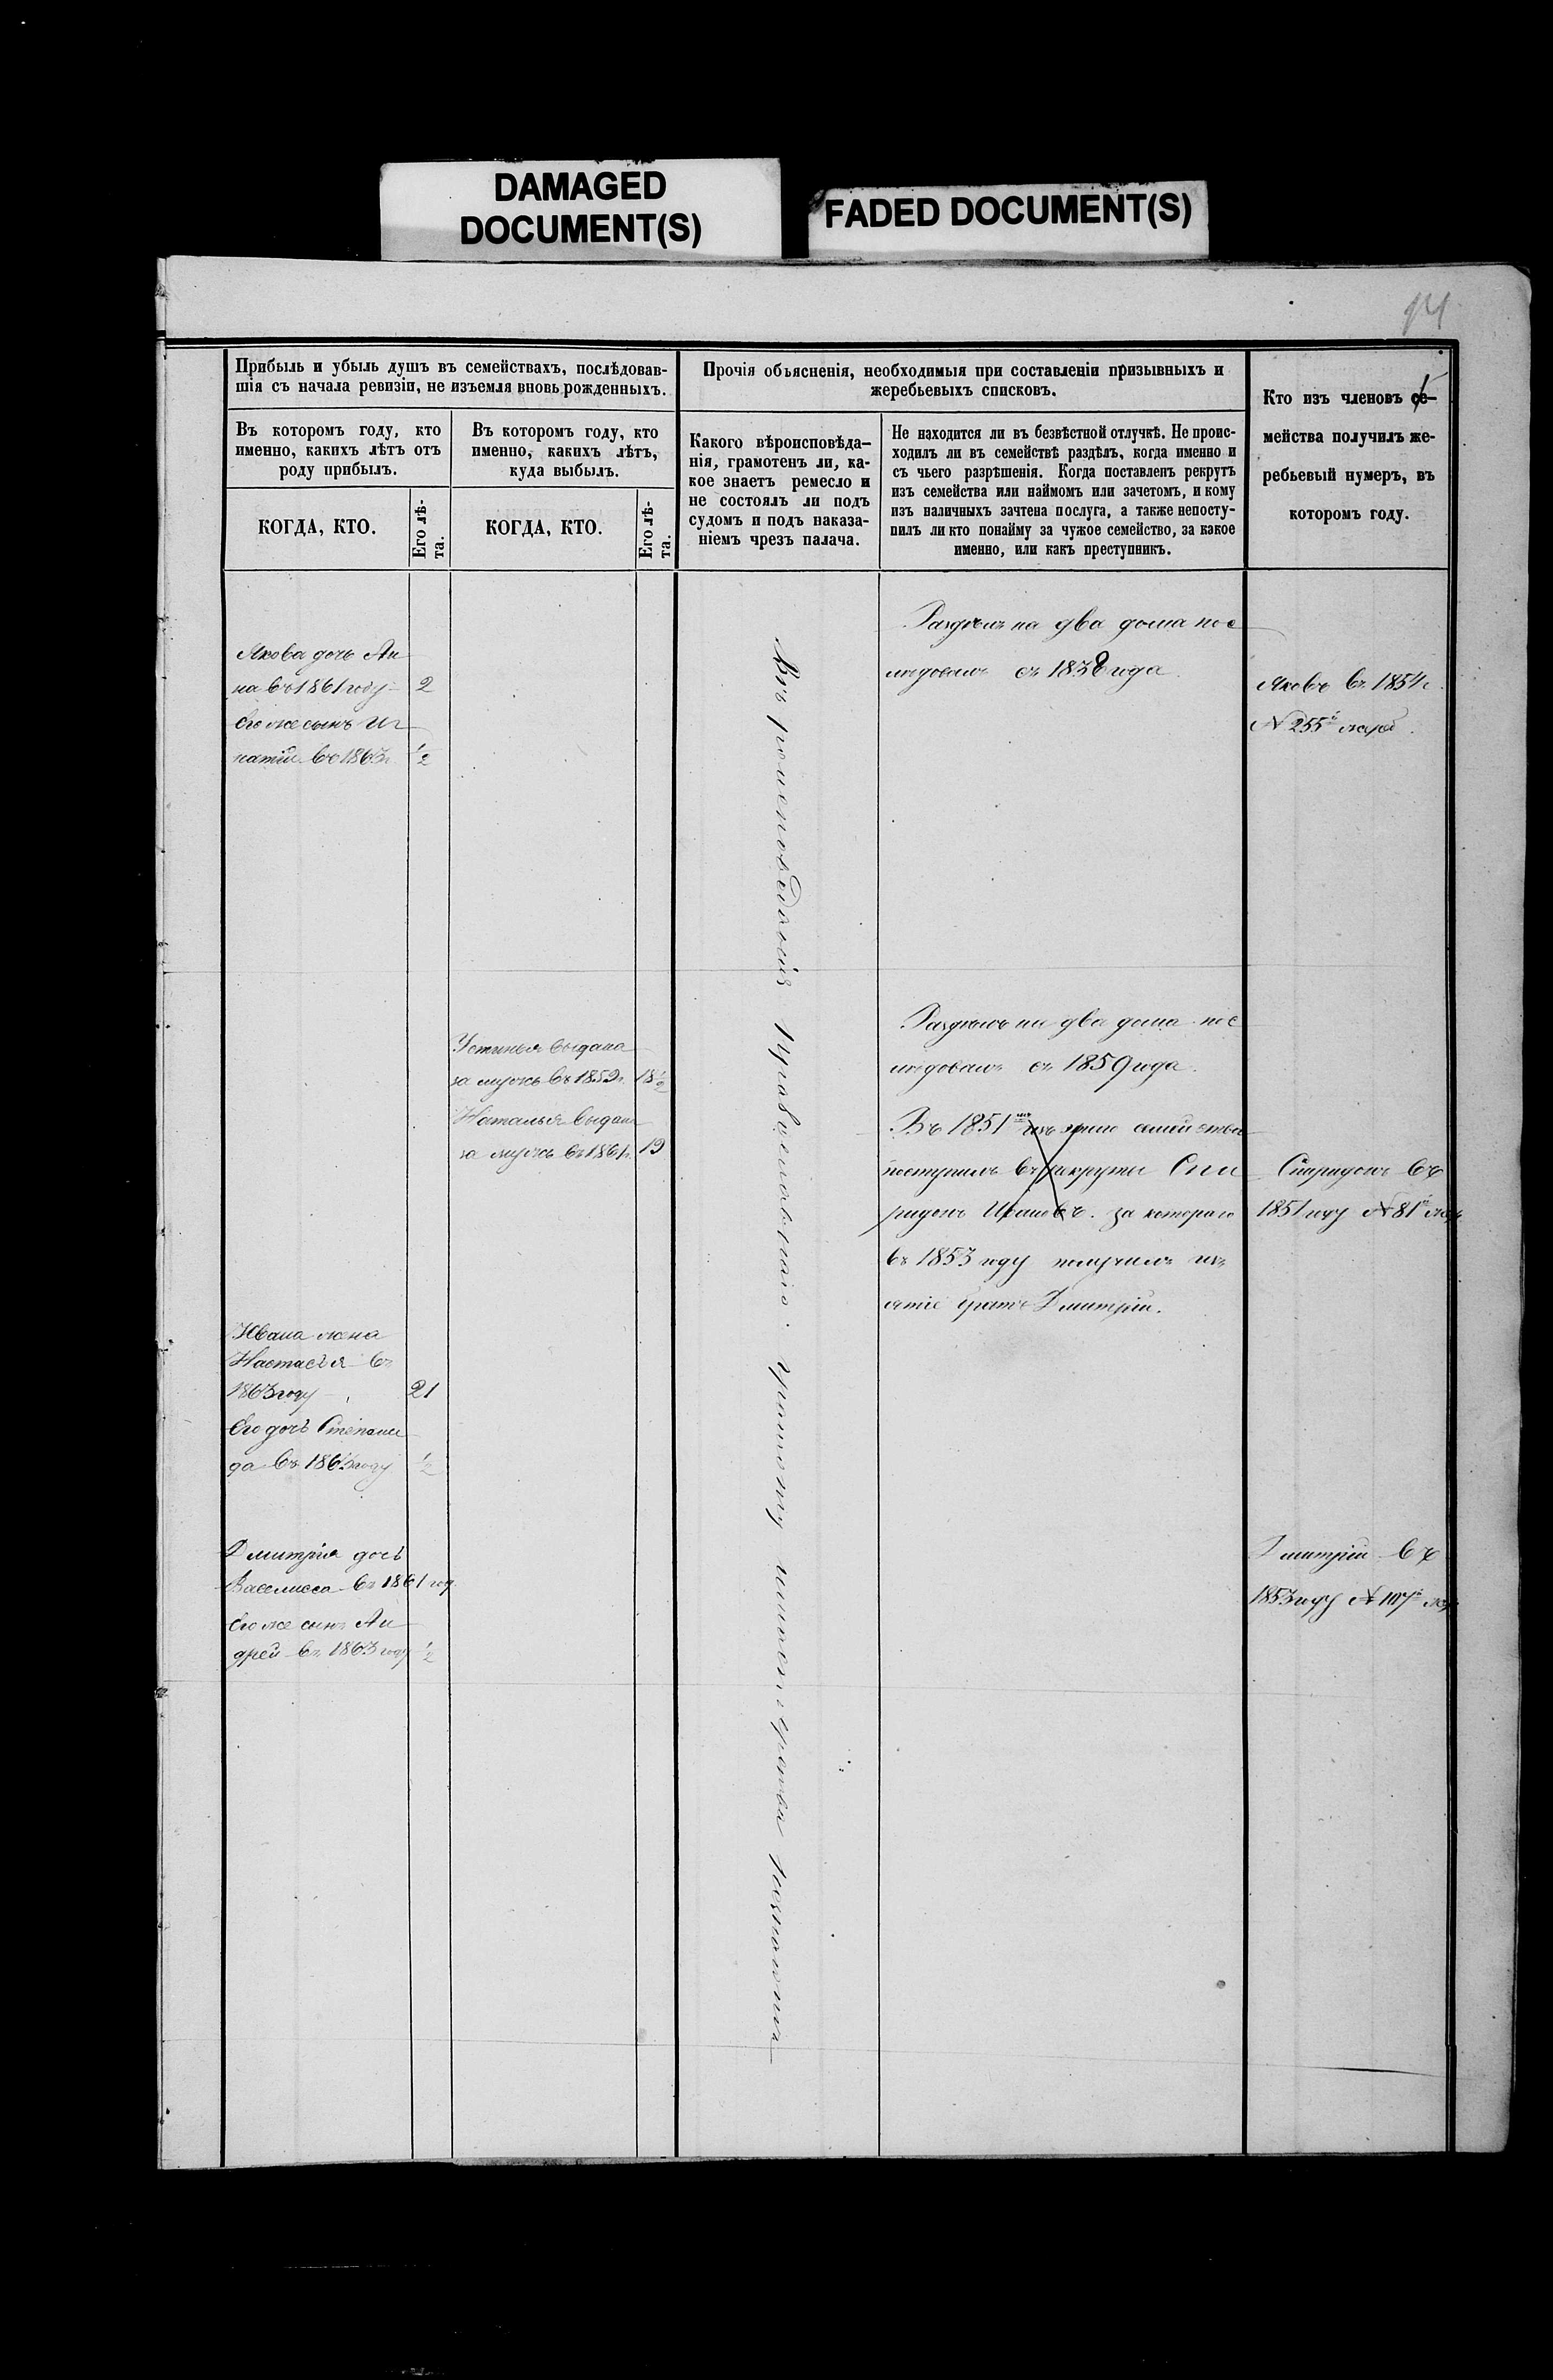 DAMAGED
DOCUMENT(S)
FADED DOCUMENT(S)
Прибыль и убыль душъ въ семействахъ, послѣдовав-
шія съ начала ревизіи, не изъемля вновь рожденныхъ.
Въ которомъ году, кто
именно, какихъ лѣтъ отъ
роду прибылъ.
КОГДА, КТО.
Его лѣ-
та.
Въ которомъ году, кто
именно, какихъ лѣтъ,
куда выбылъ.
КОГДА, КТО.
Его лѣ-
та.
Прочія объясненія, необходимыя при составленіи призывныхъ и
жеребьевыхъ списковъ.
Какого вѣроисповѣда-
нія, грамотенъ ли, ка-
кое знаетъ ремесло и
не состоялъ ли подъ
судомъ и подъ наказа-
ніемъ чрезъ палача.
Не находится ли въ безвѣстной отлучкѣ. Не проис-
ходилъ ли въ семействѣ раздѣлъ, когда именно и
съ чьего разрѣшенія. Когда поставленъ рекрутъ
изъ семейства или наймомъ или зачетомъ, и кому
изъ наличныхъ зачтена послуга, а также непосту-
пилъ ли кто понайму за чужое семейство, за какое
именно, или какъ преступникъ.
Кто изъ членовъ се-
мейства получилъ же-
ребьевый нумеръ, въ
которомъ году.
Якова дочь Ан
на въ 1861 году 2
Его же сынъ Иг
натій въ 1863 г. ½
Раздѣлъ на два дома пос
лѣдовалъ съ 1838 года.
Яковъ въ 1854 г.
№ 255й жереб.
Устинья выдана
за мужъ въ 1859 г. 18½
Наталья выдана
за мужъ въ 1861 г. 19
Раздѣлъ на два дома пос
лѣдовалъ съ 1859 года.
Въ 1851 изъ семейства
поступилъ въ рекруты Спи
ридонъ Ивановъ. за котораго
въ 1853 году получилъ
братъ Дмитрій.
Спиридонъ въ
1851 году № 81й жер
Ивана жена
Настасья въ
1863 году 21
Его дочь Степани
да въ 1863 году ½
Дмитрія дочь
Василиса въ 1861 год
Его же сынъ Ан
дрей въ 1863 году ½
Дмитрій въ
1853 году № 107й жер
Вѣроисповѣданія Православнаго. грамоту